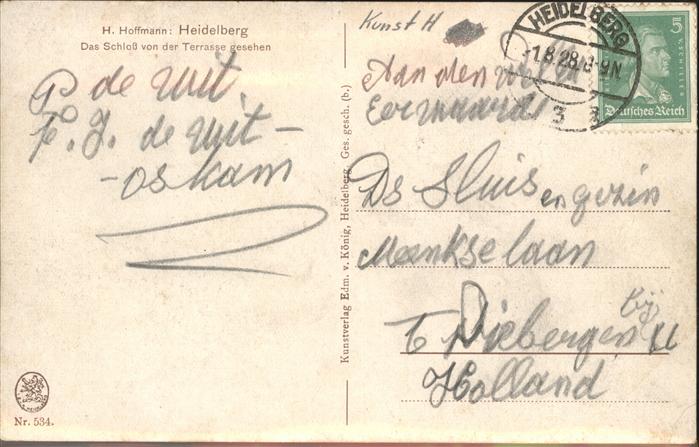 H. Hoffmann: Heidelberg
Das Schloß von der Terrasse gesehen
P de Wit.
F. J. de Wit -
- oskam
Nr. 534.
Kunstverlag Edm. v. König, Heidelberg. Ges. gesch. (b.)
Kunst H
HEIDELBERG
-1.8.28.8-9N.
3 a
5
F.v.SCHILLER
Deutsches Reich
Aan den
Eerwaarde
Ds Sluis en gezin
Mankse laan
bij
Driebergen
Holland